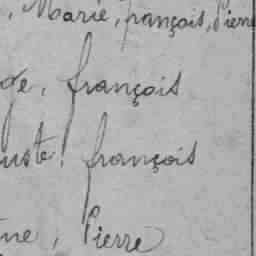 , Marie, françois, Pierre
ge, françois
uste, françois
ne, Pierre